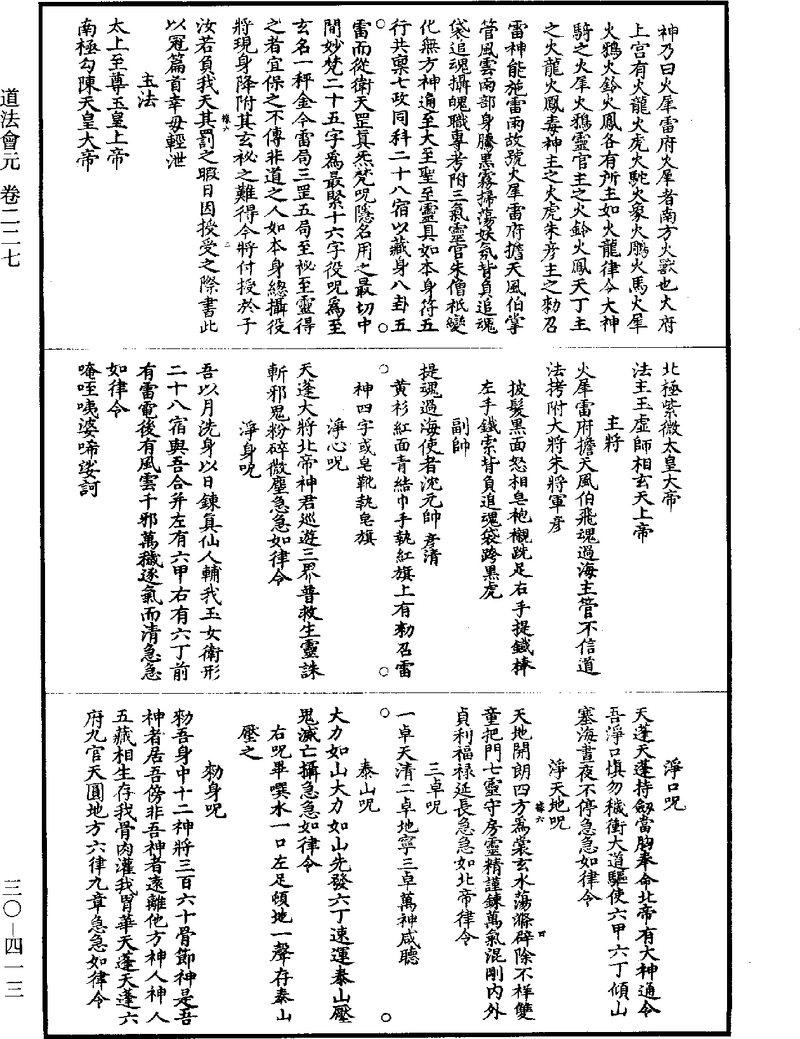 道法會元 卷二二七
三〇—四一三
神乃曰火犀雷府火犀者南方火獸也火府
上宮有火龍火虎火駝火象火鵰火馬火犀
火鴉火鈴火鳳各有所主如火龍律令大神
騎之火犀火鴉靈官主之火鈴火鳳天丁主
之火龍火鳳毒神主之火虎朱彦主之勑召
雷神能施雷雨故號火犀雷府擔天風伯掌
管風雲雨部身騰黑霧掃蕩妖氛背負追魂
袋追魂攝魄職專考附三氣靈官朱僧祇變
化無方神通至大至聖至靈具如本身符五
行共稟七政同科二十八宿以藏身八卦五
雷而從衛天罡真炁梵呪隱名用之最切中
間妙梵二十五字爲最緊十六字役呪爲至
玄名一秤金今雷局三罡五局至祕至靈得
之者宜保之不傳非道之人如本身總攝役
將現身降附其玄祕之難得今將付授於子
汝若負我天其罰之暇日因授受之際書此
以冠篇首幸毋輕泄
主法
太上至尊玉皇上帝
南極勾陳天皇大帝
北極紫微太皇大帝
法主玉虛師相玄天上帝
主將
火犀雷府擔天風伯飛魂過海主管不信道
法拷附大將朱將軍彦
披髮黑面怒相皂袍襯跣足右手提鐵棒
左手鐵索背負追魂袋跨黑虎
副帥
提魂過海使者沈元帥彦清
黄衫紅面青結巾手執紅旗上有勑召雷
神四字或皂靴執皂旗
淨心呪
天蓬大將北帝神君巡遊三界普救生靈誅
斬邪鬼粉碎微塵急急如律令
淨身呪
吾以月洗身以日鍊真仙人輔我玉女衛形
二十八宿與吾合并左有六甲右有六丁前
有雷電後有風雲千邪萬穢逐氣而清急急
如律令
唵咥㖂婆啼娑訶
淨口呪
天蓬天蓬持劒當胸奉命北帝有大神通令
吾淨口愼勿穢衝大道驅使六甲六丁傾山
塞海晝夜不停急急如律令
淨天地呪
天地開朗四方爲裳玄水蕩滌辟除不祥雙
童把門七靈守房靈精謹鍊萬氣混剛內外
貞利福禄延長急急如北帝律令
三卓呪
一卓天清二卓地寧三卓萬神咸聽
泰山呪
大力如山大力如山先發六丁速運泰山壓
鬼滅亡攝急急如律令
右呪畢噀水一口左足頓地一聲存泰山
壓之
勑身呪
勑吾身中十二神將三百六十骨節神是吾
神者居吾傍非吾神者遠離他方神人神人
五藏相生存我骨肉灌我胃華天蓬天蓬六
府九宫天圓地方六律九章急急如律令